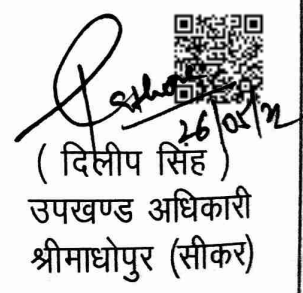 26/05/22
( दिलीप सिंह )
उपखण्ड अधिकारी
श्रीमाधोपुर (सीकर)